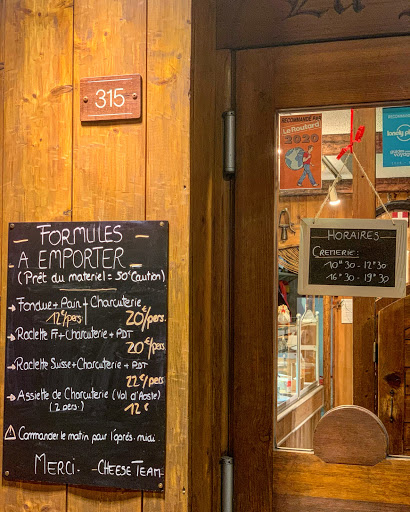 La
315
RECOMMANDÉ PAR
Le Routard
2020
lonely planet
FORMULES
A EMPORTER
(Prêt du materiel = 50€ Caution)
Fondue + Pain + Charcuterie
12€/pers. 20€/pers.
Raclette Fr + Charcuterie + PDT
20€/pers.
Raclette Suisse + Charcuterie + PDT
22€/pers.
Assiette de Charcuterie (Val d'Aoste)
(2 pers.) 12€
Commander le matin pour l'après-midi.
MERCI. - CHEESE TEAM -
HORAIRES
CREMERIE:
10H30 - 12H30
16H30 - 19H30